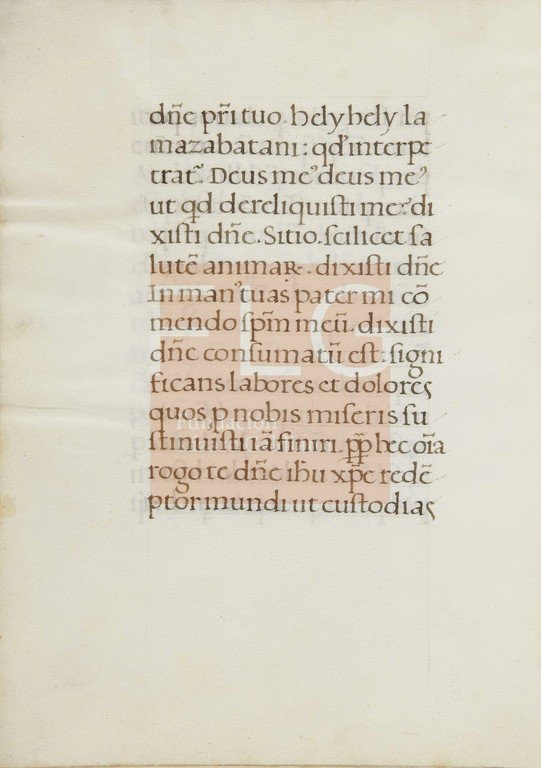 dn̄e pr̄i tuo hely hely la
mazabatani: qd̓ interpe
trat᷑. Deus me᷒ deus me᷒
ut qd dereliquiſti me: di
xiſti dn̄e. Sitio. ſcilicet ſa
lutē animaꝝ. dixiſti dn̄e
In man᷒ tuas pater mi cō
mendo ſpm̄ meū. dixiſti
dn̄e conſumatū eſt: ſigni
ficans labores et dolores
quos ꝓ nobis miſeris ſu
ſtinuiſti iā finiri. ꝓꝑ hec oīa
rogo te dn̄e ihu xp̄e redē
ptor mundi ut cuſtodias
FLG
Fundación